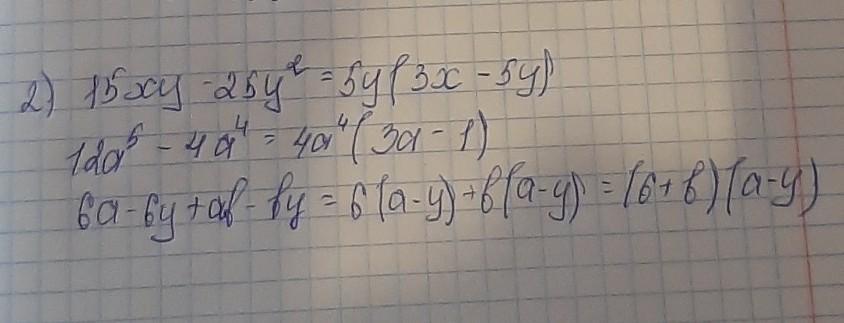 2) 15xy - 25y² = 5y(3x - 5y)
12a⁵ - 4a⁴ = 4a⁴(3a - 1)
6a - 6y + ab - by = 6(a - y) + b(a - y) = (6 + b)(a - y)